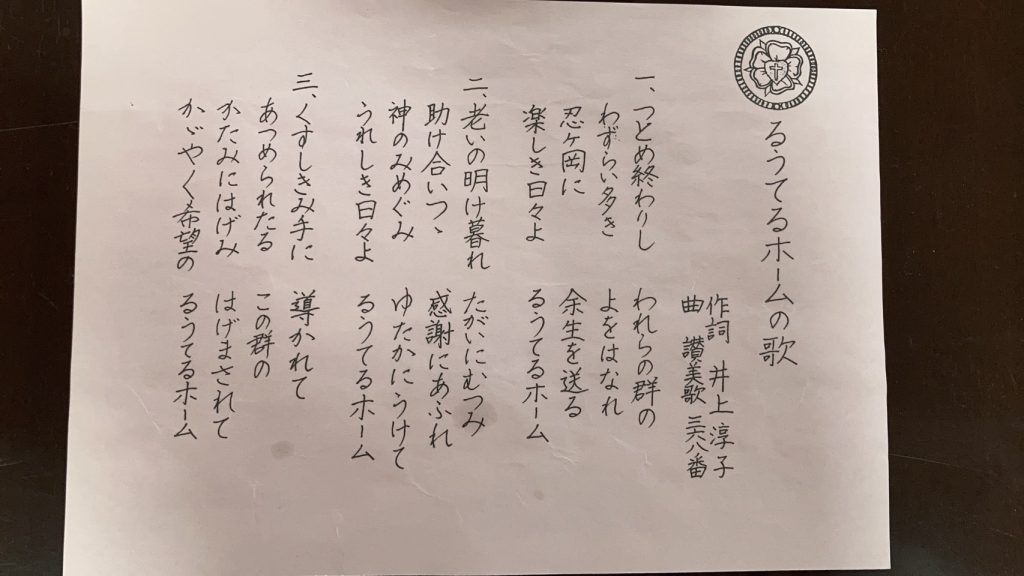 るうてるホームの歌
作詞 井上淳子
曲 讃美歌 三六八番
一、つとめ終わりし われらの群の
わずらい多き よをはなれ
忍ヶ岡に 余生を送る
楽しき日々よ るうてるホーム
二、老いの明け暮れ たがいにむつみ
助け合いつゝ 感謝にあふれ
神のみめぐみ ゆたかにうけて
うれしき日々よ るうてるホーム
三、くすしきみ手に 導かれて
あつめられたる この群の
かたみにはげみ はげまされて
かゞやく希望の るうてるホーム